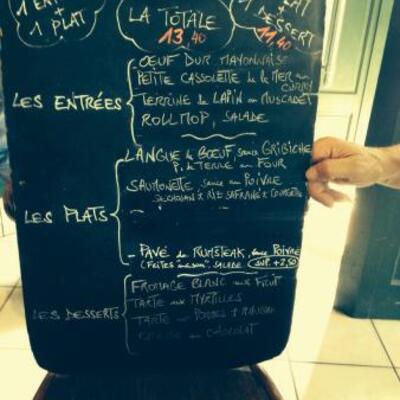 1 PLAT
LA TOTALE
13,40
1 PLAT
+
DESSERT
11,40
LES ENTRÉES
- OEUF DUR MAYONNAISE
PETITE CASSOLETTE de la MER au CURRY
TERRINE de LAPIN au MUSCADET
ROLLMOP, SALADE
LES PLATS
LANGUE de BŒUF, sauce GRIBICHE
P. de TERRE au FOUR
SAUMONETTE sauce au POIVRE
RIZ SAFRANÉ + COURGETTE
- PAVÉ de RUMSTEAK, sauce POIVRE
(FRITES "maison", SALADE SUP. +2,50
LES DESSERTS
FROMAGE BLANC aux FRUIT
TARTE aux MYRTILLES
TARTE aux POMMES
au CHOCOLAT